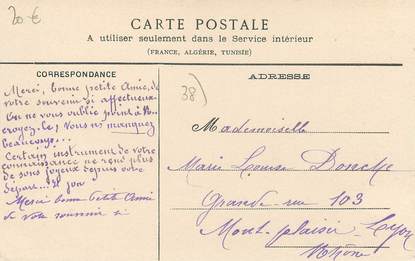 20 €
CARTE POSTALE
A utiliser seulement dans le Service intérieur
(FRANCE, ALGÉRIE, TUNISIE)
CORRESPONDANCE
ADRESSE
38)
Merci, bonne petite Amie, de
votre souvenir si affectueux
On ne vous oublie point à
croyez-le, Vous ns manquez
beaucoup...
Certain instrument de votre
connaissance ne rend plus
de sons joyeux depuis votre
départ...
Merci bonne Petite Amie
de votre souvenir si
Mademoiselle
Marie Louise Donche
Grande-rue 103
Mont-plaisir-Lyon
Rhône